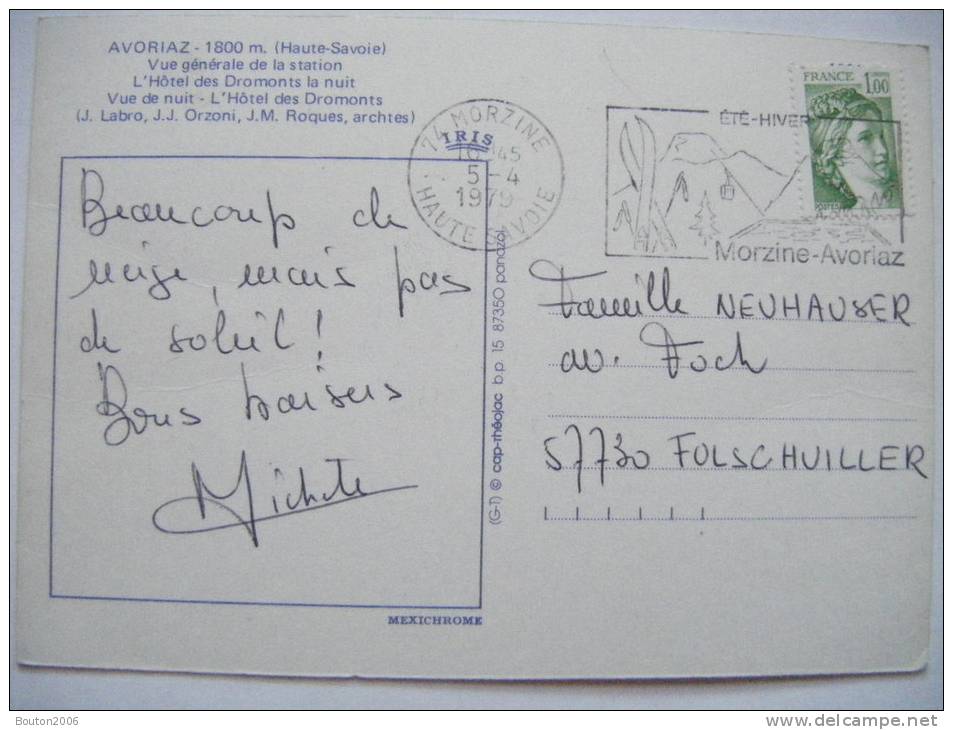 AVORIAZ - 1800 m. (Haute-Savoie)
Vue générale de la station
L'Hôtel des Dromonts la nuit
Vue de nuit - L'Hôtel des Dromonts
(J. Labro, J.J. Orzoni, J.M. Roques, archtes)
IRIS
74 MORZINE
16 H45
5-4
1979
HAUTE SAVOIE
ÉTÉ-HIVER
Morzine-Avoriaz
FRANCE 1,00
POSTES
Beaucoup de
neige, mais pas
de soleil!
Bons baisers
Michèle
MEXICHROME
(G-1) © cap-théojac b.p. 15 87350 panazol
Famille NEUHAUSER
av. Foch
57730 FOLSCHUILLER
Bouton2006
delcampe.net